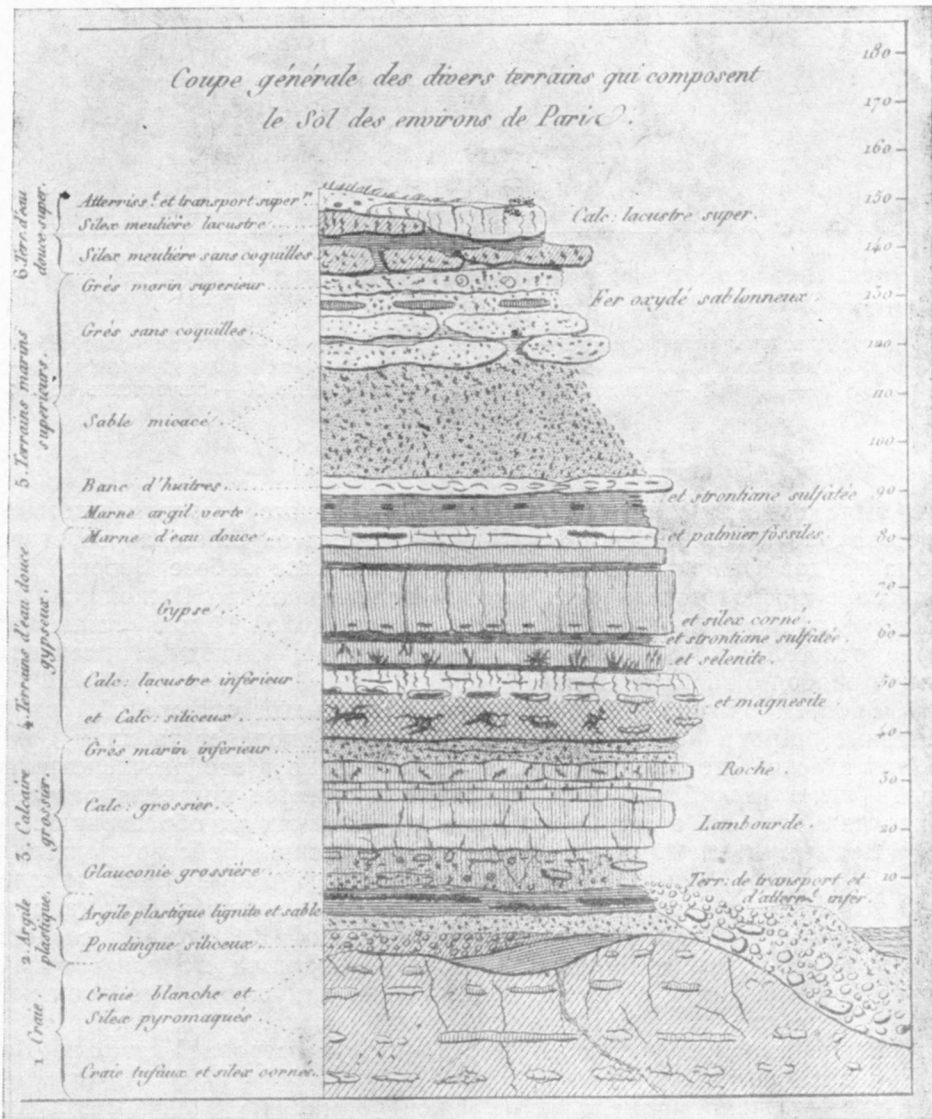 Coupe générale des divers terrains qui composent
le Sol des environs de Paris.
180
170
160
150
140
130
120
110
100
90
80
70
60
50
40
30
20
10
6. Terr. d'eau
douce super.
5. Terrains marins
superieurs.
4. Terrains d'eau douce
gypseux.
3. Calcaire
grossier.
2. Argile
plastique.
1. Craie.
Atterriss.t et transport super.r
Silex meulière lacustre
Silex meulière sans coquilles
Grès marin superieur
Grès sans coquilles
Sable micacé
Banc d'huitres
Marne argil verte
Marne d'eau douce
Gypse
Calc: lacustre inférieur
et Calc: siliceux
Grès marin inférieur
Calc: grossier
Glauconie grossière
Argile plastique lignite et sable
Poudingue siliceux
Craie blanche et
Silex pyromaques
Craie tufaux et silex cornés
Calc: lacustre super.
Fer oxydé sablonneux
et strontiane sulfatée
et palmier fossiles
et silex corné
et strontiane sulfatée.
et selenite.
et magnesite
Roche.
Lambourde.
Terr: de transport et
d'atterr.t infér.